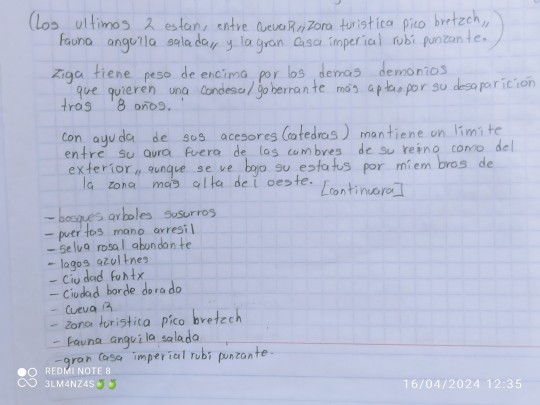 (Los ultimos 2 estan, entre cueva R,, Zona turistica pico bretzch,,
Fauna anguila salada,, y la gran casa imperial rubi punzante.)
Ziga tiene peso de encima por los demas demonios
que quieren una condesa/goberrante más apta, por su desaparicion
tras 8 años.
con ayuda de sus acesores (catedras) mantiene un limite
entre su aura fuera de las cumbres de su reino como del
exterior,, aunque se ve bajo su estatus por miembros de
la zona mas alta del oeste. [continuara]
- bosques arboles susurros
- puertos mano arresil
- selva rosal abundante
- lagos azultnes
- Ciudad funtx
- Ciudad borde dorado
- Cueva R
- Zona turistica pico bretzch
- Fauna anguila salada
- gran casa imperial rubi punzante.
REDMI NOTE 8
3LM4NZ4S🍏🍏
16/04/2024 12:35